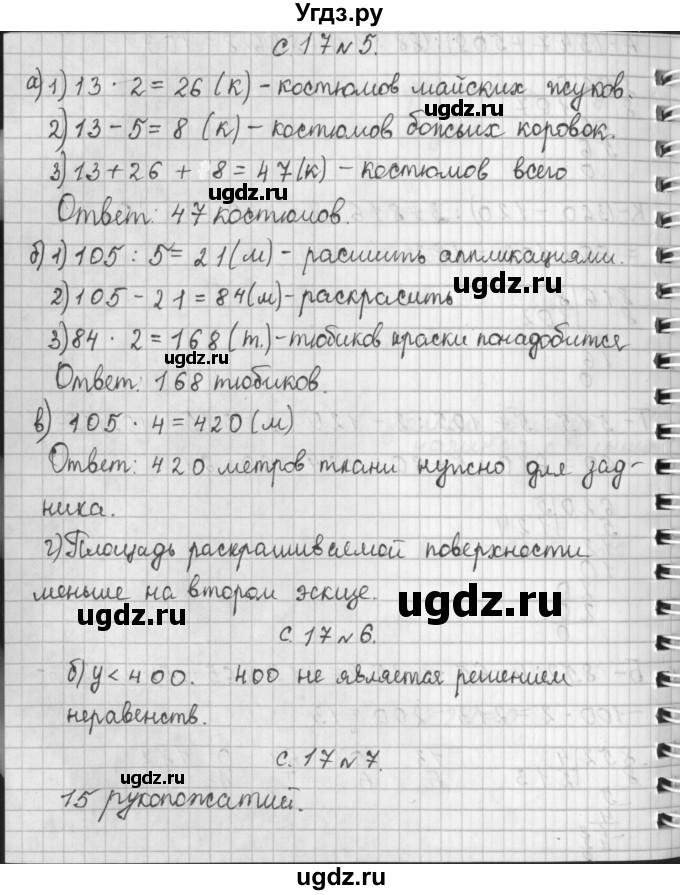 Угдз.ру
с 17 № 5.
а) 1) 13 · 2 = 26 (к) - костюмов майских жуков.
2) 13 - 5 = 8 (к) - костюмов божьих коровок.
3) 13 + 26 + 8 = 47 (к) - костюмов всего
Ответ: 47 костюмов.
б) 1) 105 : 5 = 21 (м) - расшить аппликациями.
2) 105 - 21 = 84 (м) - раскрасить
3) 84 · 2 = 168 (т.) - тюбиков краски понадобится
Ответ: 168 тюбиков.
в) 105 · 4 = 420 (м)
Ответ: 420 метров ткани нужно для зад-
ника.
г) Площадь раскрашиваемой поверхности
меньше на втором эскизе.
с. 17 № 6.
б) у < 400. 400 не является решением
неравенств.
с. 17 № 7.
15 рукопожатий.
ugdz.ru
ugdz.ru
ugdz.ru
ugdz.ru
ugdz.ru
ugdz.ru
ugdz.ru
ugdz.ru
ugdz.ru
ugdz.ru